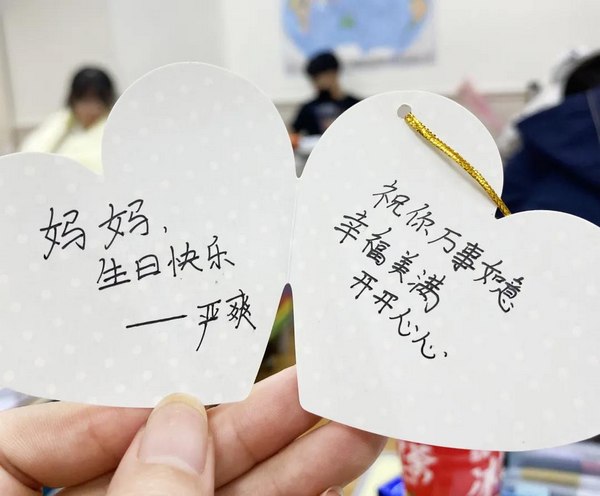 妈妈，
生日快乐
——严爽
祝你万事如意
幸福美满
开开心心.